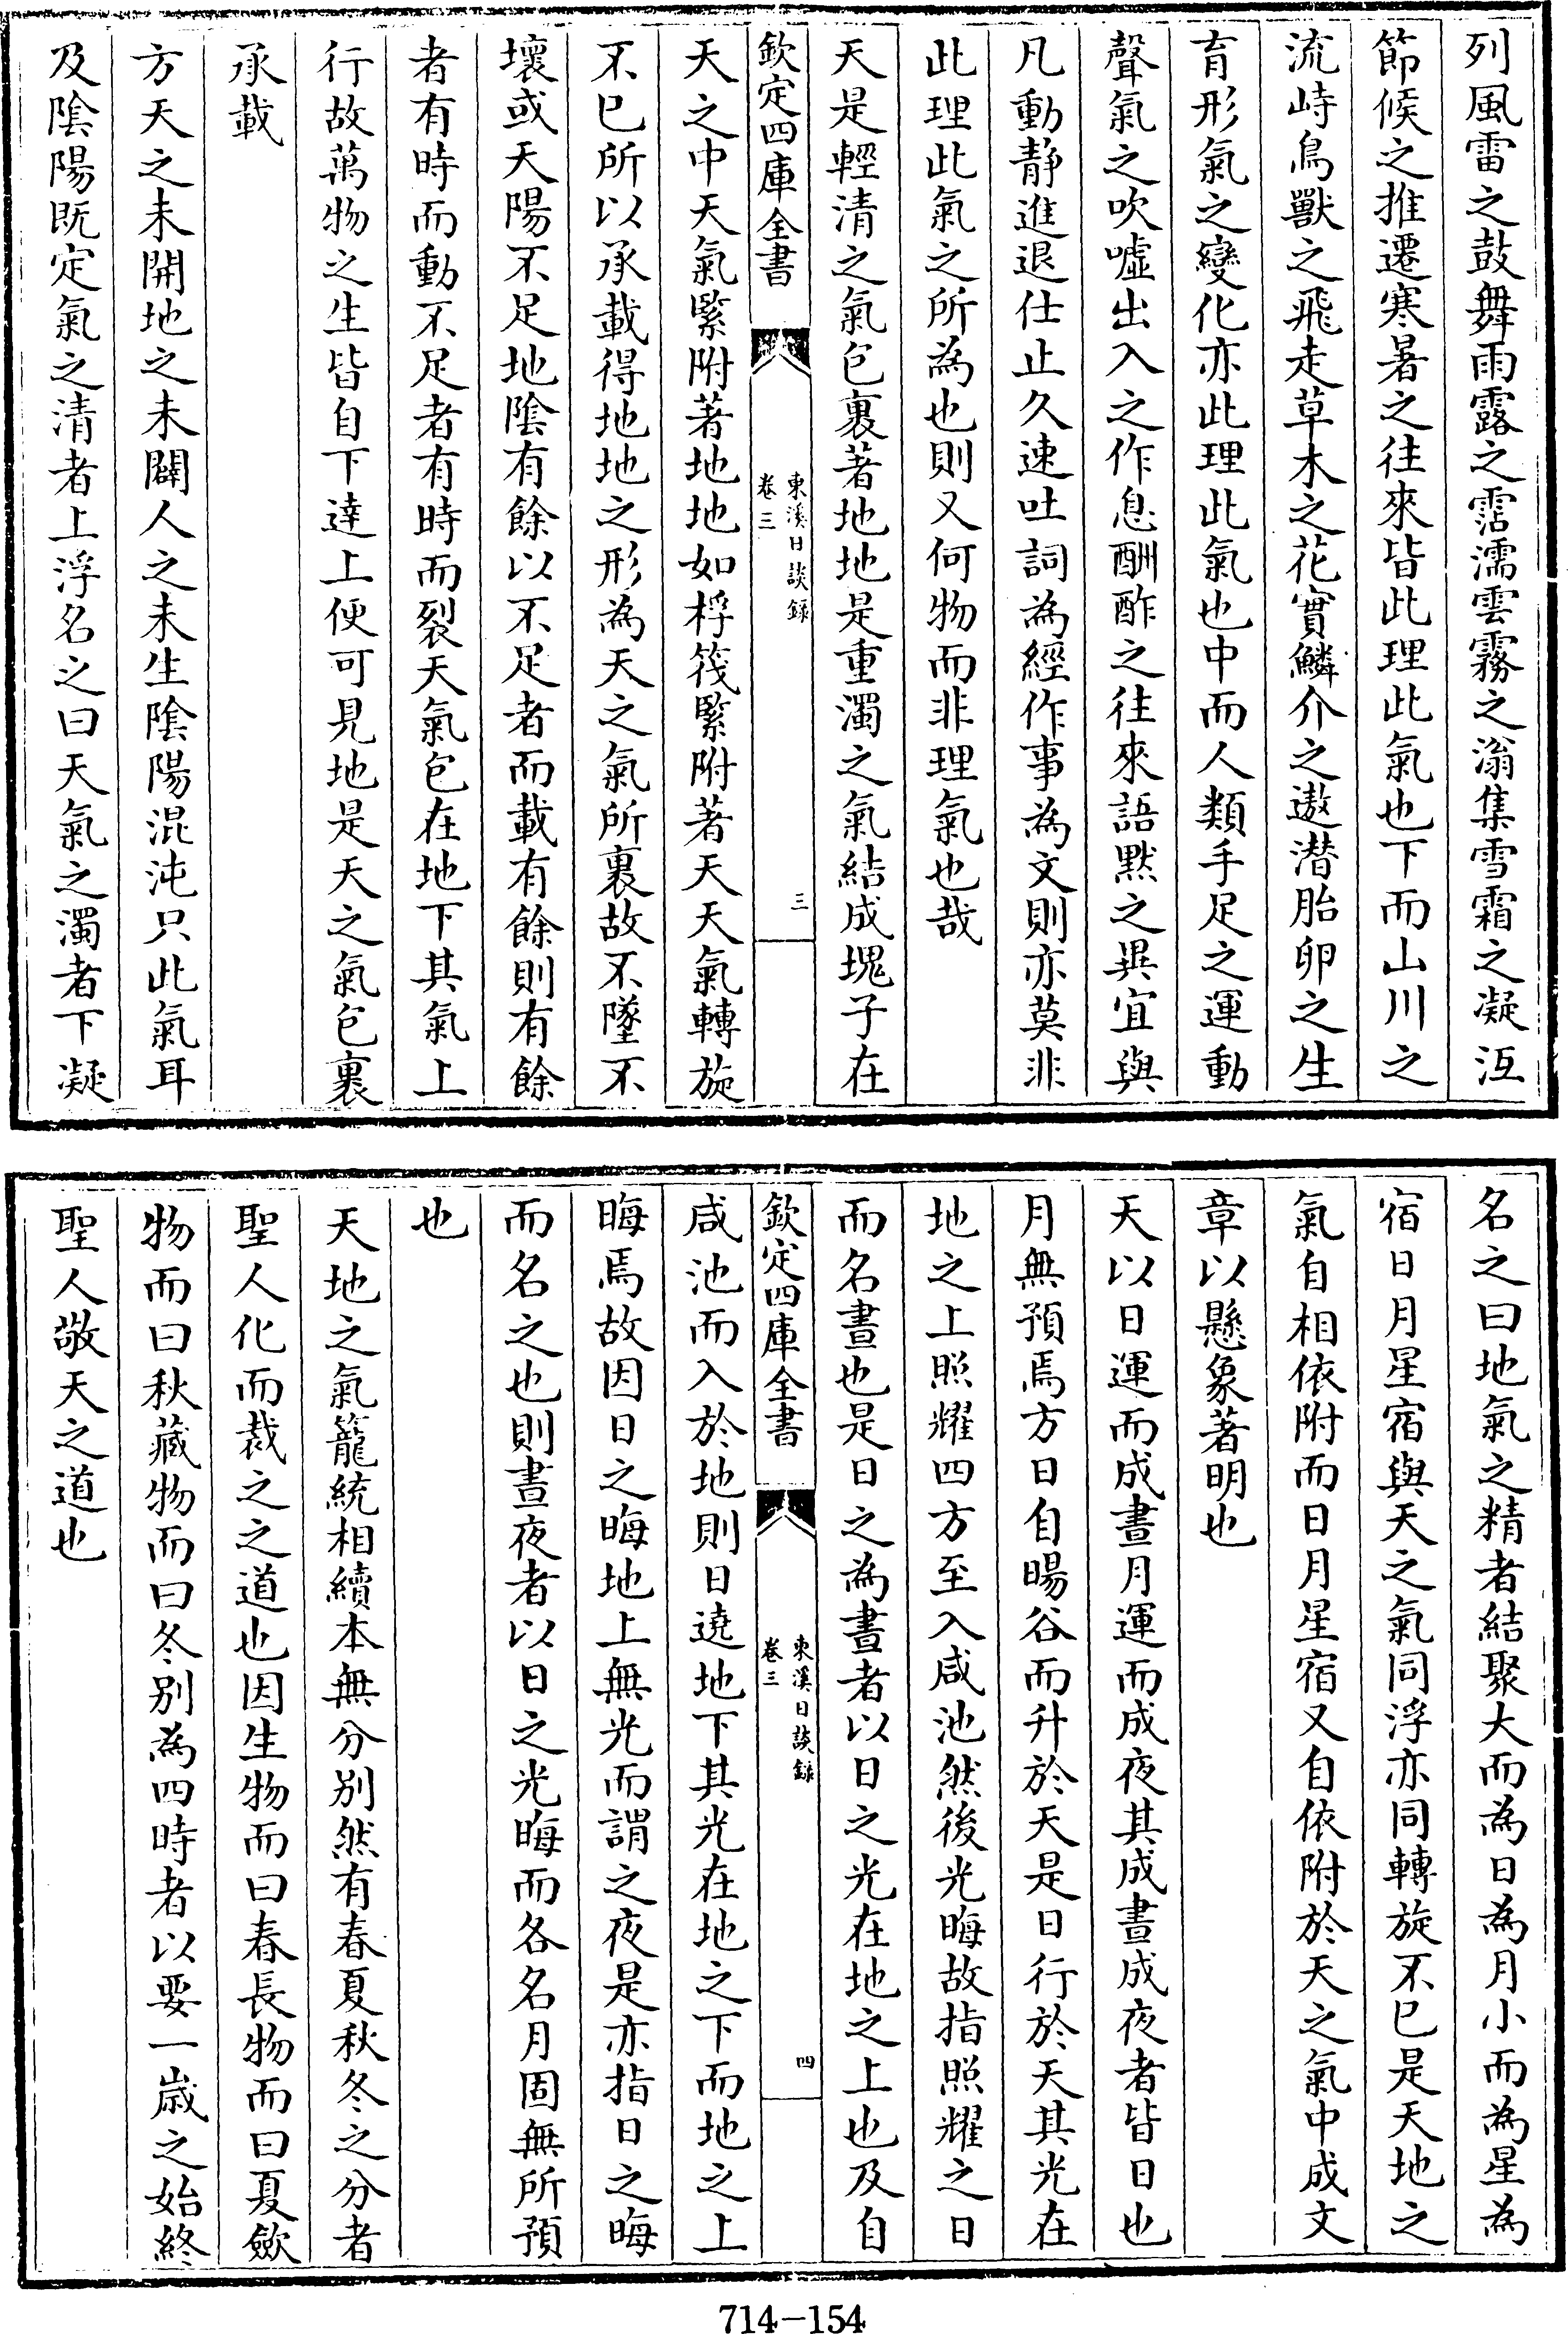 列風雷之鼓舞雨露之霑濡雲霧之滃集雪霜之凝沍
節候之推遷寒暑之往來皆此理此氣也下而山川之
流峙鳥獸之飛走草木之花實鱗介之遨潜胎卵之生
育形氣之變化亦此理此氣也中而人類手足之運動
聲氣之吹噓出入之作息酬酢之往來語默之異宜與
凡動静進退仕止久速吐詞為經作事為文則亦莫非
此理此氣之所為也則又何物而非理氣也哉
天是輕清之氣包裹著地地是重濁之氣結成塊子在
欽定四庫全書
東溪日談録
卷三
三
天之中天氣緊附著地地如桴筏緊附著天天氣轉旋
不已所以承載得地地之形為天之氣所裹故不墜不
壞或天陽不足地陰有餘以不足者而載有餘則有餘
者有時而動不足者有時而裂天氣包在地下其氣上
行故萬物之生皆自下達上便可見地是天之氣包裹
承載
方天之未開地之未闢人之未生陰陽混沌只此氣耳
及陰陽既定氣之清者上浮名之曰天氣之濁者下凝
名之曰地氣之精者結聚大而為日為月小而為星為
宿日月星宿與天之氣同浮亦同轉旋不已是天地之
氣自相依附而日月星宿又自依附於天之氣中成文
章以懸象著明也
天以日運而成晝月運而成夜其成晝成夜者皆日也
月無預焉方日自暘谷而升於天是日行於天其光在
地之上照耀四方至入咸池然後光晦故指照耀之日
而名晝也是日之為晝者以日之光在地之上也及自
欽定四庫全書
東溪日談録
卷三
四
咸池而入於地則日遶地下其光在地之下而地之上
晦焉故因日之晦地上無光而謂之夜是亦指日之晦
而名之也則晝夜者以日之光晦而各名月固無所預
也
天地之氣籠統相續本無分别然有春夏秋冬之分者
聖人化而裁之之道也因生物而曰春長物而曰夏斂
物而曰秋藏物而曰冬别為四時者以要一歳之始終
聖人敬天之道也
714-154